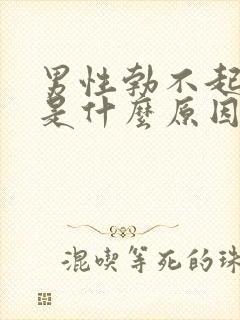 男性勃不起
是什麼原因
混喫等死的珠